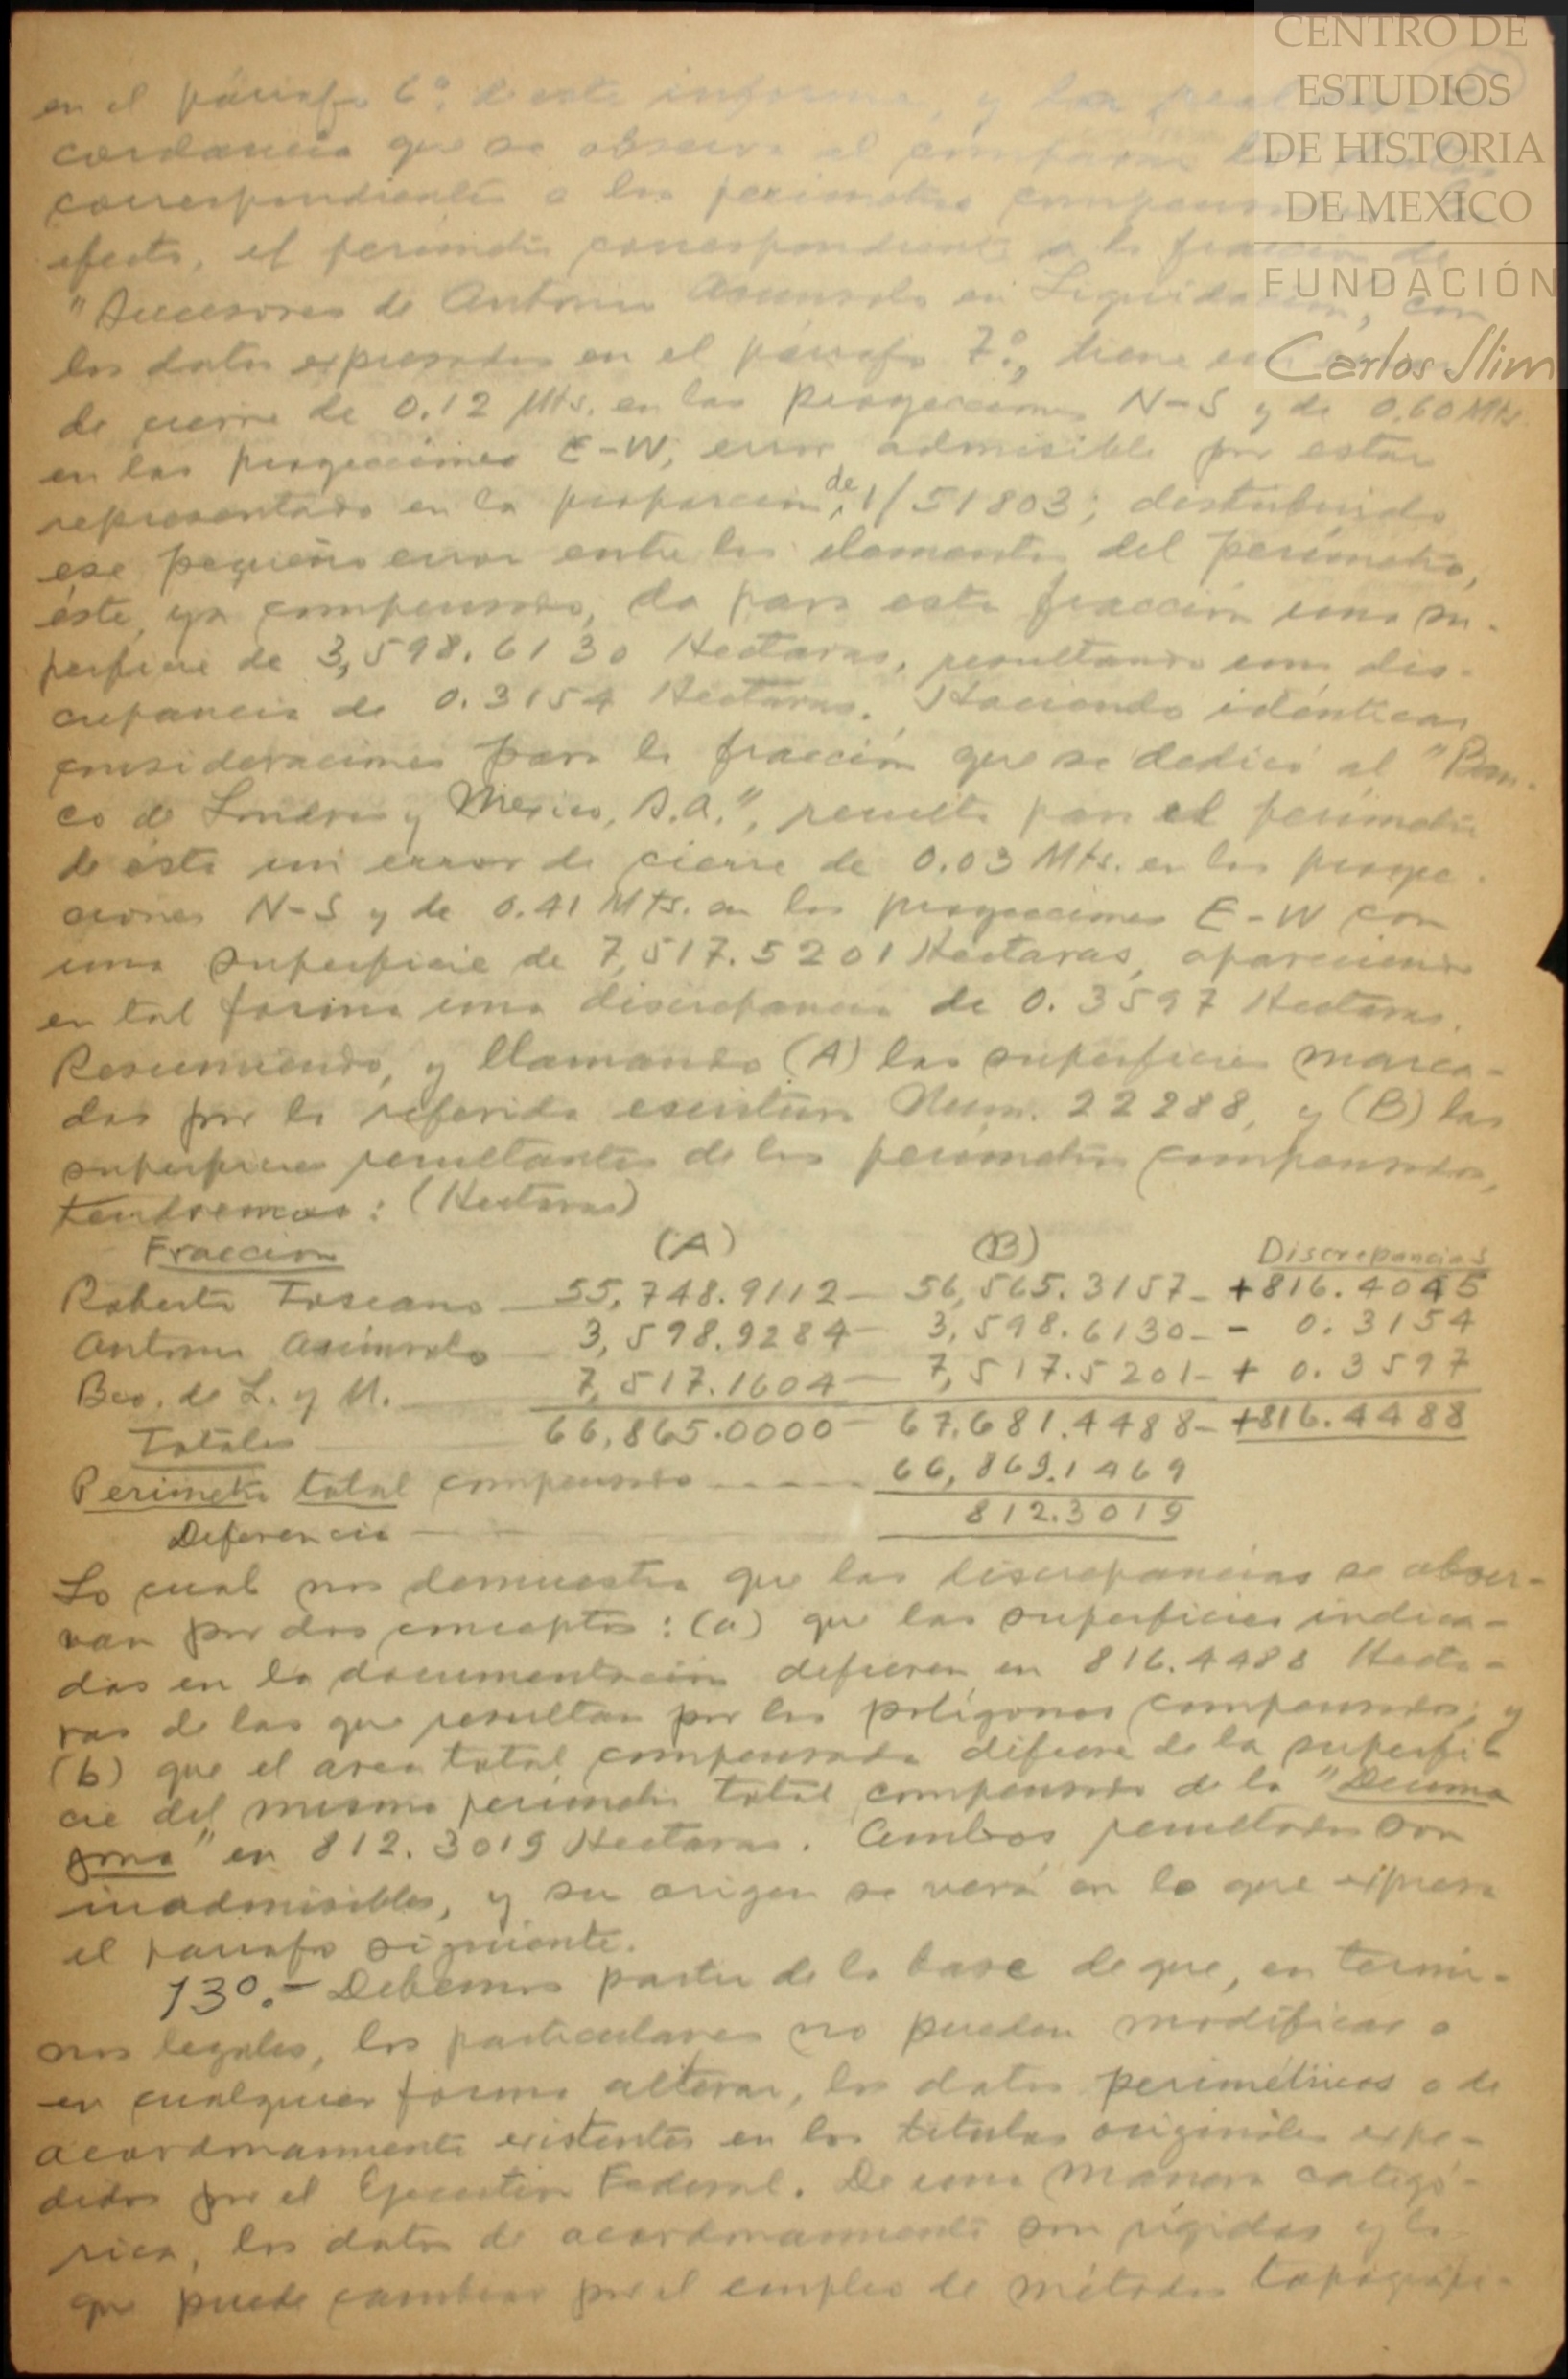 CENTRO DE
ESTUDIOS
DE HISTORIA
DE MEXICO
FUNDACIÓN
Carlos Slim
en el párrafo 6º. de este informe, y la
cordancia que se observa al comparar los
correspondientes a los perímetros compensados
efecto, el perímetro correspondiente a la fracción de
"Sucesores de Antonio Asúnsolo en Liquidación, con
los datos expresados en el párrafo 7º., tiene
de cierre de 0.12 Mts. en las proyecciones N-S y de 0.60 Mts.
en las proyecciones E-W, error admisible por estar
representado en la proporción de 1/51803; distribuido
ese pequeño error entre los elementos del perímetro,
éste, ya compensado, da para esta fracción una su-
perficie de 3,598.6130 Hectaras, resultando una dis-
crepancia de 0.3154 Hectaras. Haciendo idénticas
consideraciones para la fracción que se dedicó al "Ban-
co de Londres y Mexico, S.A.", resulta para el perímetro
de ésta un error de cierre de 0.03 Mts. en las proyec-
ciones N-S y de 0.41 Mts. en las proyecciones E-W con
una superficie de 7,517.5201 Hectaras, apareciendo
en tal forma una discrepancia de 0.3597 Hectaras.
Resumiendo, y llamando (A) las superficies marca-
das por la referida escritura Num. 22288, y (B) las
superficies resultantes de los perímetros compensados,
tendremos: (Hectaras)
Fraccion (A) (B) Discrepancias
Roberto Toscano — 55,748.9112 — 56,565.3157 — +816.4045
Antonio Asúnsolo — 3,598.9284 — 3,598.6130 — - 0.3154
Bco. de L. y M. — 7,517.1604 — 7,517.5201 — + 0.3597
Totales — 66,865.0000 — 67,681.4488 — +816.4488
Perimetro total compensado ---- 66,869.1469
Diferencia — 812.3019
Lo cual nos demuestra que las discrepancias se obser-
van por dos conceptos: (a) que las superficies indica-
das en la documentación difieren en 816.4488 Hecta-
ras de las que resultan por los polígonos compensados; y
(b) que el area total compensada difiere de la superfi-
cie del mismo perímetro total compensado de la
en 812.3019 Hectaras. Ambos resultados son
inadmisibles, y su origen se verá en lo que expresa
el parrafo siguiente.
13º.- Debemos partir de la base de que, en térmi-
nos legales, los particulares no pueden modificar o
en cualquier forma alterar, los datos perimétricos o de
acordonamiento existentes en los titulos originales expe-
didos por el Ejecutivo Federal. De una manera categó-
rica, los datos de acordonamiento son rígidos y lo
que puede cambiar por el empleo de métodos topográfi-